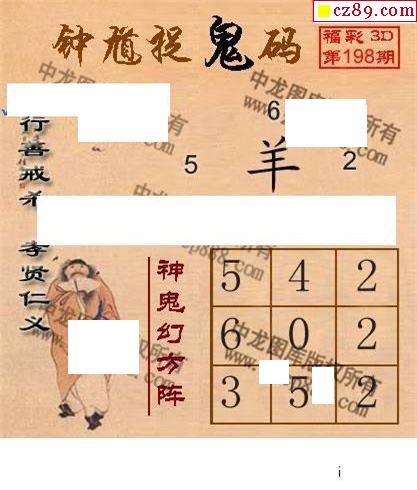 cz89.com
钟馗捉鬼码
福彩 3D
第198期
行善戒杀
孝贤仁义
6
5 羊 2
神鬼幻方阵
5 4 2
6 0 2
3 5 2
中龙图库版权所有
i